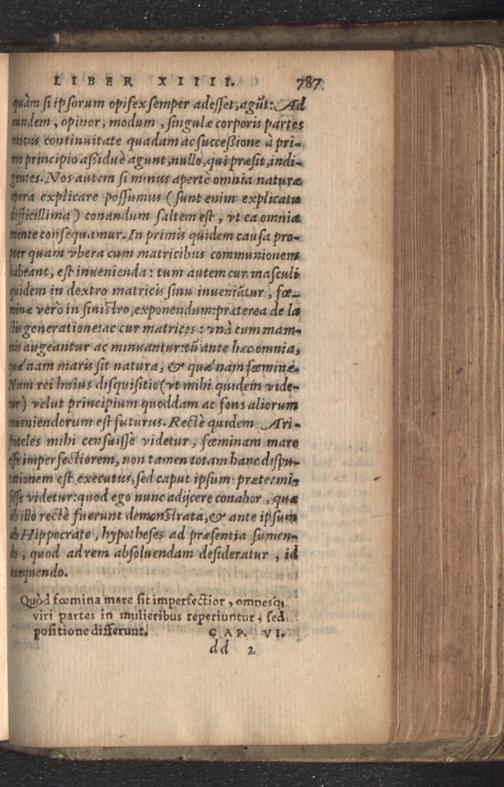 LIBER XIIII. 787
quàm si ipsorum opifex semper adesset, agũt: Ad
eundem, opinor, modum, singulæ corporis partes
motus continuitate quadam ac successione à pri-
mo principio assiduè agunt, nullo, qui præsit, indi-
gentes. Nos autem si minus apertè omnia naturæ
opera explicare possumus (sunt enim explicatu
difficillima) conandum saltem est, vt ea omnia
mente consequamur. In primis quidem causa pro-
pter quam vbera cum matricibus communionem
habeant, est inuenienda: tum autem cur masculi
quidem in dextro matricis sinu inueniãtur, fœ-
minæ verò in sinistro, exponendum: præterea de la
ctis generatione: ac cur matrices: vnà cum mam-
mis augeantur ac minuantur: tũ ante hæc omnia,
quænam maris sit natura, & quænam fœminæ.
Nam rei huius disquisitio (vt mihi quidem vide-
tur) velut principium quoddam ac fons aliorum
inueniendorum est futurus. Rectè quidem Ari-
stoteles mihi censuisse videtur, fœminam mare
esse imperfectiorem, non tamen totam hanc dispu-
tationem est executus, sed caput ipsum prætermi-
sisse videtur: quod ego nunc adijcere conabor, quæ
ab illo rectè fuerunt demonstrata, & ante ipsum
ab Hippocrate, hypotheses ad præsentia sumen-
do, quod ad rem absoluendam desideratur, id
exequendo.
Quòd fœmina mare sit imperfectior, omnesq́
viri partes in mulieribus reperiuntur, sed
positione differunt. CAP. VI.
dd 2